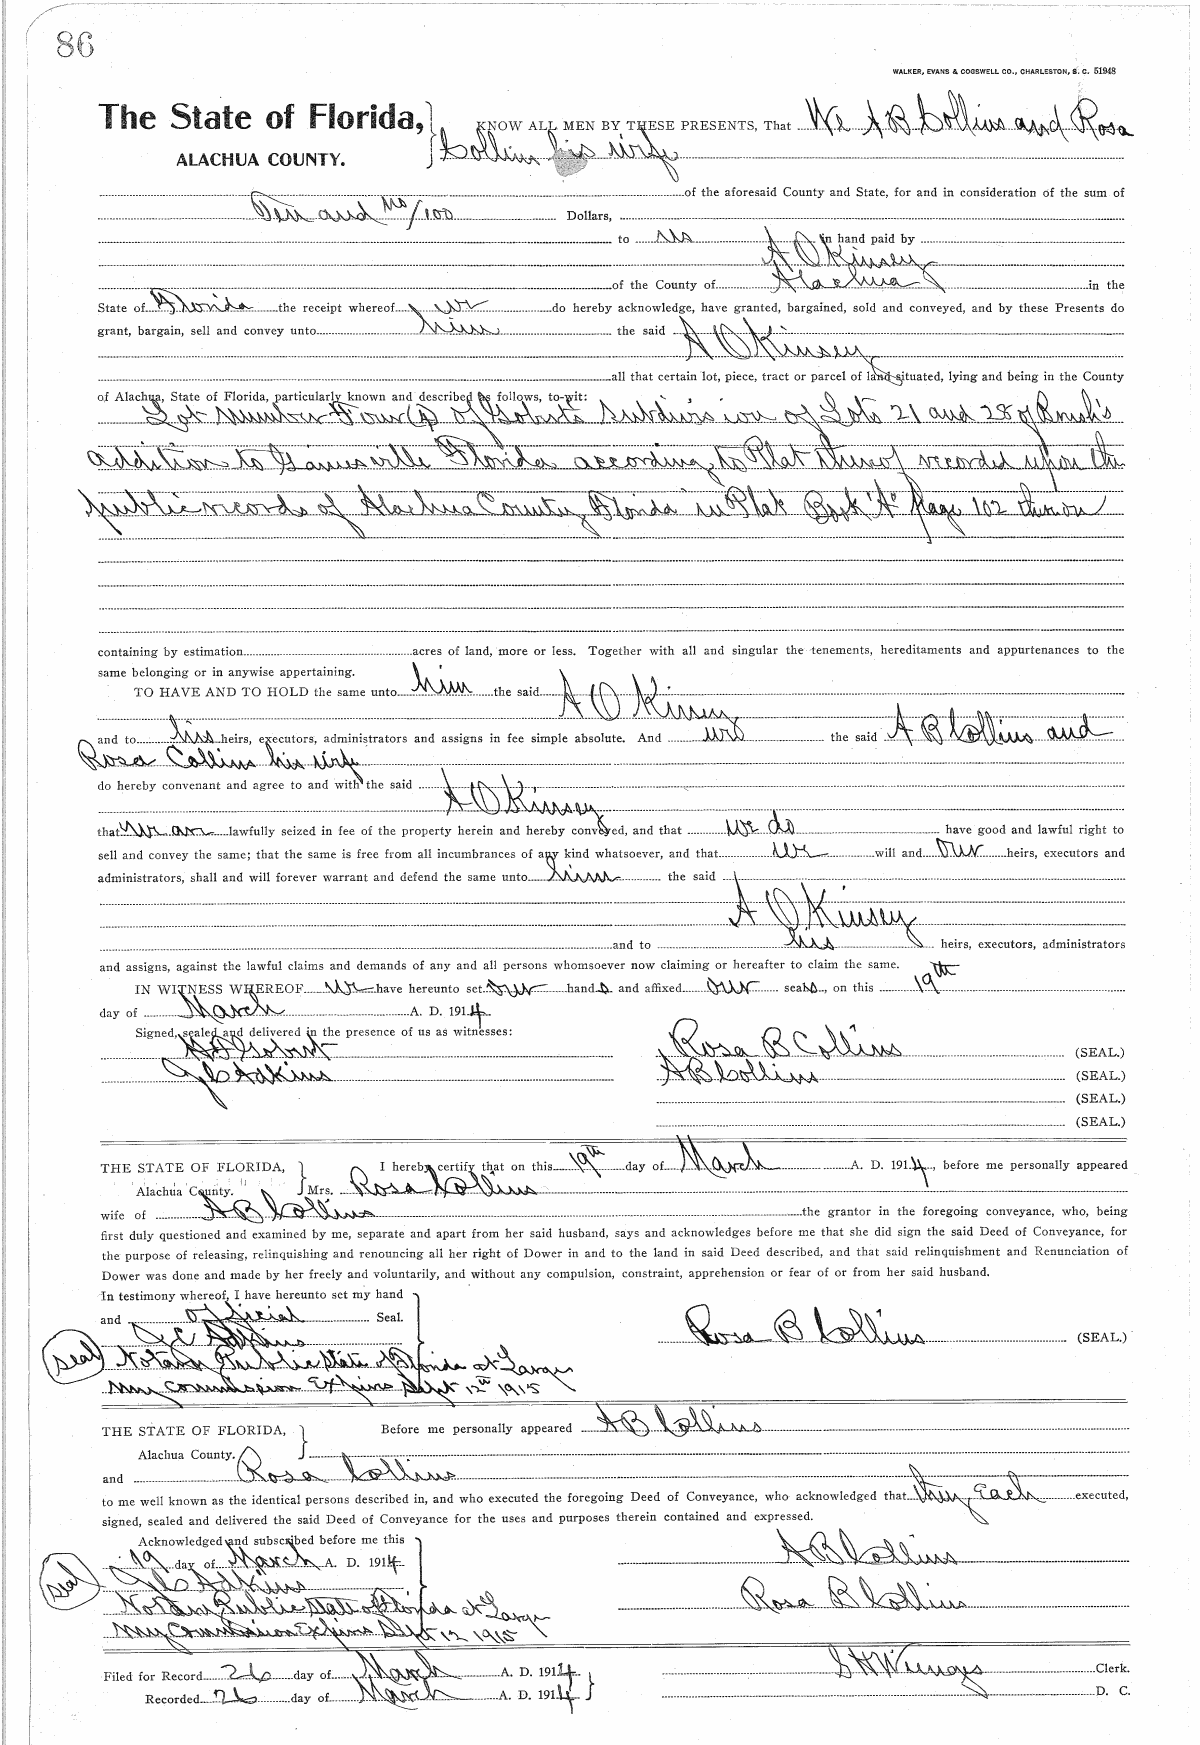 86
WALKER, EVANS & COGSWELL CO., CHARLESTON, S. C. 51948
The State of Florida, KNOW ALL MEN BY THESE PRESENTS, That We A B Collins and Rosa
ALACHUA COUNTY. Collins his wife
of the aforesaid County and State, for and in consideration of the sum of
Ten and no/100 Dollars,
to us in hand paid by
A O Kinsey
of the County of Alachua in the
State of Florida the receipt whereof we do hereby acknowledge, have granted, bargained, sold and conveyed, and by these Presents do
grant, bargain, sell and convey unto him the said
A O Kinsey
all that certain lot, piece, tract or parcel of land situated, lying and being in the County
of Alachua, State of Florida, particularly known and described as follows, to-wit:
Lot Number Four of Subdivision of Lots 21 and 28 of Brush's
addition to Gainesville Florida according to Plat thereof recorded upon the
public records of Alachua County Florida in Plat Book "A" page 102 thereon
containing by estimation acres of land, more or less. Together with all and singular the tenements, hereditaments and appurtenances to the
same belonging or in anywise appertaining.
TO HAVE AND TO HOLD the same unto him the said
A O Kinsey
and to his heirs, executors, administrators and assigns in fee simple absolute. And we the said A B Collins and
Rosa Collins his wife
do hereby convenant and agree to and with the said
A O Kinsey
that we are lawfully seized in fee of the property herein and hereby conveyed, and that we do have good and lawful right to
sell and convey the same; that the same is free from all incumbrances of any kind whatsoever, and that we will and our heirs, executors and
administrators, shall and will forever warrant and defend the same unto him the said
A O Kinsey
and to his heirs, executors, administrators
and assigns, against the lawful claims and demands of any and all persons whomsoever now claiming or hereafter to claim the same.
IN WITNESS WHEREOF we have hereunto set our hands and affixed our seals, on this 19th
day of March A. D. 1914
Signed, sealed and delivered in the presence of us as witnesses:
Rosa B Collins (SEAL.)
J C Adkins A B Collins (SEAL.)
(SEAL.)
(SEAL.)
THE STATE OF FLORIDA, I hereby certify that on this 19th day of March A. D. 1914, before me personally appeared
Alachua County. Mrs. Rosa Collins
wife of A B Collins the grantor in the foregoing conveyance, who, being
first duly questioned and examined by me, separate and apart from her said husband, says and acknowledges before me that she did sign the said Deed of Conveyance, for
the purpose of releasing, relinquishing and renouncing all her right of Dower in and to the land in said Deed described, and that said relinquishment and Renunciation of
Dower was done and made by her freely and voluntarily, and without any compulsion, constraint, apprehension or fear of or from her said husband.
In testimony whereof, I have hereunto set my hand
and official Seal.
J C Adkins Rosa B Collins (SEAL.)
Seal Notary Public State of Florida at Large
My Commission Expires Sept 12th 1915
THE STATE OF FLORIDA, Before me personally appeared A B Collins
Alachua County.
and Rosa Collins
to me well known as the identical persons described in, and who executed the foregoing Deed of Conveyance, who acknowledged that they Each executed,
signed, sealed and delivered the said Deed of Conveyance for the uses and purposes therein contained and expressed.
Acknowledged and subscribed before me this
19 day of March A. D. 1914 A B Collins
Seal J C Adkins
Notary Public State of Florida at Large Rosa B Collins
My Commission Expires Sept 12 1915
Filed for Record 26 day of March A. D. 1914 S H Wienges Clerk.
Recorded 26 day of March A. D. 1914 D. C.